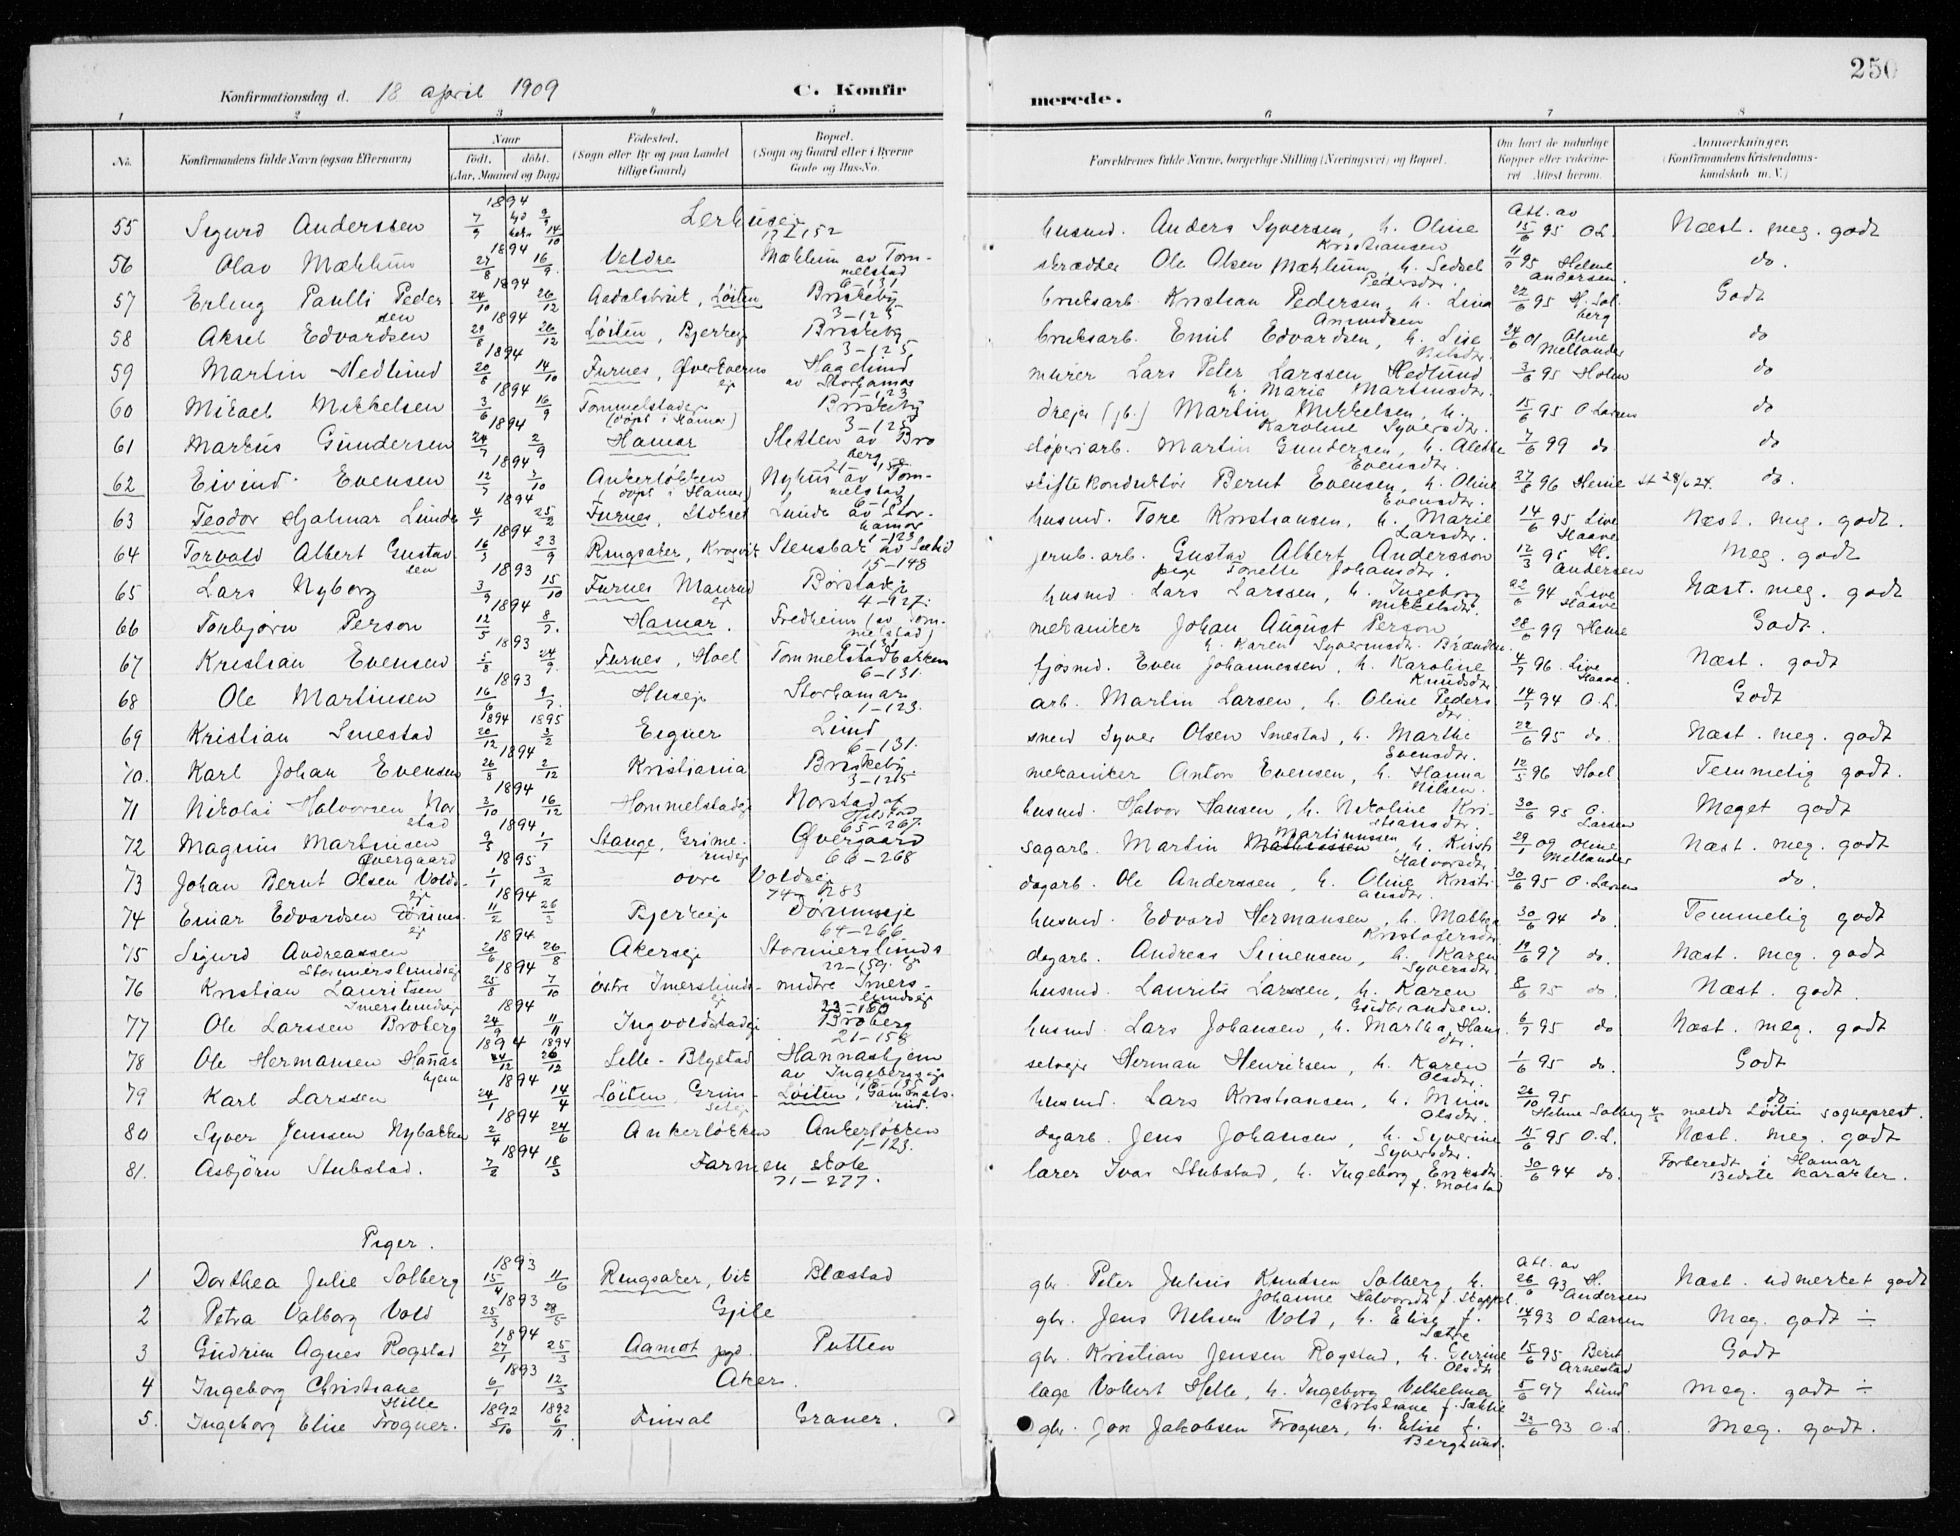 250
Konfirmationsdag d. 18 april 1909 C. Konfirmerede.
1 2 3 4 5 6 7 8
No.
Konfirmandens fulde Navn (ogsaa Efternavn)
Naar født. døbt. (Aar, Maaned og Dag)
Fødested. (Sogn eller By og paa Landet tillige Gaard)
Bopæl. (Sogn og Gaard eller i Byerne Gade og Hus-No.
Forældrenes fulde Navne, borgerlige Stilling (Næringsvei) og Bopæl.
Om havt de naturlige Kopper eller vakcineret Attest herom.
Anmærkninger. (Konfirmandens Kristendomskundskab m. V.)
55 Sigurd Anderssen 1894 7/9 14/10 17-152 husmd. Anders Syversen, h. Oline Kristiansen Att. av 15/6 95 O.L. Næst. meg. godt
56 Olav Mæhlum 1894 27/8 16/9 Veldre Mæhlum av Tommelstad 6-131 skrædder Ole Olsen Mæhlum, h. Sedsel Pedersdtr. 95 Helene Andersen do.
57 Erling Paulli Pedersen 1894 24/10 26/12 Aadalsbruk, Løiten Briskeby 3-125 bruksarb. Kristian Pedersen, h. Lina Amundsen 22/6 95 H. Solberg Godt
58 Aksel Edvardsen 1894 29/8 26/12 Løiten, Bjerkeeje Briskeby 3-125 bruksarb. Emil Edvardsen, h. Lise Nilsdtr. 24/6 01 Oline Mellander do
59 Martin Hedlund 1894 20/8 14/10 Furnes, Øverkverneje Hagelund av Storhamar 1-123 murer Lars Peter Larssen Hedlund h. Marie Martinsdtr. 3/6 95 Holen do
60 Mikael Mikkelsen 1894 3/6 16/9 Tommelstadeje (døpt i Hamar) Briskeby 3-125 dreje Martin Mikkelsen, h. Karoline Syversdtr. 15/6 95 O Larsen do
61 Markus Gundersen 1894 24/7 2/9 Hamar Sletten av Broberg støperiarb. Martin Gundersen, h. Alette Evensdtr. 7/6 99 do do
62 Eivind Evensen 1894 12/7 7/10 Ankerløkken (døpt i Hamar) Nyhus av Tommelstad 6-131 skiftekonduktør Bernt Evensen, h. Oline Evensdtr. 27/8 96 Heme st 28/6 24. do.
63 Teodor Hjalmar Lunde 1894 4/1 25/2 Furnes, Stokset Lunde av Storhamar 1-123 husmd. Tore Kristiansen, h. Marie Larsdtr. 14/6 95 Live Haave Næst. meg. godt.
64 Torvald Albert Gustavsen 1894 16/3 23/9 Ringsaker, Krogvik Stensbak av Sælid 15-148 jernb. arb. Gustav Albert Andersson pige Tonette Johansdtr. 12/3 95 H. Andersen Meg. godt
65 Lars Nyborg 1893 3/9 15/10 Furnes Maurudeje Børstadeje 4-127. husmd. Lars Larssen, h. Ingeborg Mikkelsdtr. 22/6 94 Live Haave Næst. meg. godt
66 Torbjørn Person 1894 12/5 8/7. Hamar. Fredheim (av Tommelstad) 6-131 mekaniker Johan August Person h. Karen Syverinsdtr. Brænden 28/6 99 Heme Godt.
67 Kristian Evensen 1893 5/8 24/9. Furnes, Hoel Tommelstadbakken 6-131. fjøsmd. Even Johannessen, h. Karoline Knudsdtr. 4/7 96. Live Haave. Næst. godt
68 Ole Martinsen 1893 16/6 9/7. Huseje Storhamar 1-123. arb. Martin Larsen, h. Oline Pedersdtr. 14/7 94 O.L. Godt
69 Kristian Smestad 1894 1895 20/12 3/2 Eegner Lund 6-131. smed Syver Olsen Smestad, h. Marthe Evensdtr. 22/6 95 do. Næst. meg. godt
70. Karl Johan Evensen 1894 26/8 2/12 Kristiania Briskeby 3-125 mekaniker Anton Evensen, h. Hanna Nilsen. 12/5 96 Hoel Temmelig godt.
71 Nikolai Halvorsen Norstad 1894 3/10 16/12 Hommelstadeje Norstad af 65-267. husmd. Halvor Hansen, h. Nikoline Kristiansdtr. 30/6 95 O. Larsen Meget godt
72 Magnus Martinsen Øvergaard 1894 9/5 1/7 Stange, Grimerudeje Øvergaard 66-268 sagarb. Martin Martinussen, h. Kirsti Halvorsdtr. 29/1 09 Oline Mellander Næst. meg. godt
73 Johan Bernt Olsen Voldseje 1895 1/1 3/2 øvre Voldseje 74-283 dagarb. Ole Anderssen, h. Oline Kristiansdtr. 30/6 95 O. Larsen do.
74 Einar Edvardsen Dørumseje 1894 11/2 26/3 Bjerkeeje Dørumseje 64-266 husmd. Edvard Hermansen, h. Mathea Kristofersdtr. 30/6 94 do Temmelig godt
75 Sigurd Andreassen Stormerslundseje 1894 20/6 26/8 Akerseje Stormerslundseje 22-159. dagarb. Andreas Simensen, h. Karen Syversdtr. 19/6 97 do. Næst. meg. godt
76 Kristian Lauritsen Imerslundseje 1894 25/8 7/10 østre Imerslundseje midtre Imerslundseje 23-160 husmd. Laurits Larssen, h. Karen Gudbrandsen. 8/6 95 do. Næst. godt
77 Ole Larssen Broberg 1894 24/9 11/11 Ingvoldstadeje Broberg 21-158 husmd. Lars Johansen, h. Martha Hansdtr. 6/7 95 do Næst. meg. godt
78 Ole Hermansen Hannashjem 1894 1894 24/12 26/12 Lille-Blystad Hannashjem av Ingeberseje 18-155 selveje Herman Henriksen, h. Karen Olsdtr. 1/6 95 do. Godt
79 Karl Larssen 1894 24/1 14/4 Løiten, Grimseteje Løiten, Gammelsrud. husmd. Lars Kristiansen, h. Mina Olsdtr. 26/10 95 Helene Solberg do meldt Løiten sogneprest.
80 Syver Jenssen Nybakken 1894 2/4 24/6 Ankerløkken Ankerløkken 1-123. dagarb. Jens Johansen, h. Syverine Syversdtr. 15/6 95 O.L. Næst. meg. godt
81. Asbjørn Stubstad. 1894 7/2 18/3 Farmen skole 71-277. lærer Ivar Stubstad, h. Ingeborg Eriksdtr f. Molstad 30/6 94 do. Forberedt i Hamar Bedste karakter.
Piger.
1 Dorthea Julie Solberg 1893 15/4 11/6 Ringsaker, Vik Blæstad gbr. Peter Julius Knudsen Solberg, h. Johanne Halvorsdtr f. Stappel. Att. av 26/6 93 H. Andersen Næst. udmerket godt
2 Petra Valborg Vold 1893 25/3 28/5 Gjile gbr. Jens Nilsen Vold, h. Elise f. Sæthe 14/7 93 O Larsen Meg. godt ÷
3 Gudrun Agnes Rogstad 1894 27/1 25/3 Aamot pgd. Putten gbr. Kristian Jensen Rogstad, h. Gurine Olsdtr 15/6 95 Bernt Arnestad Godt
4 Ingeborg Christiane Hille 1893 6/1 12/3 Aker. læge Volkert Hille, h. Ingeborg Vilhelmine Christiane f. Sække 5/6 97 Lund Meg. godt ÷
5. Ingeborg Elise Frogner. 1892 1892 5/10 6/11. Finsal Graner. gbr. Jon Jakobsen Frogner, h. Elise f. Berglund. 23/6 93 O.L. Meg. godt.